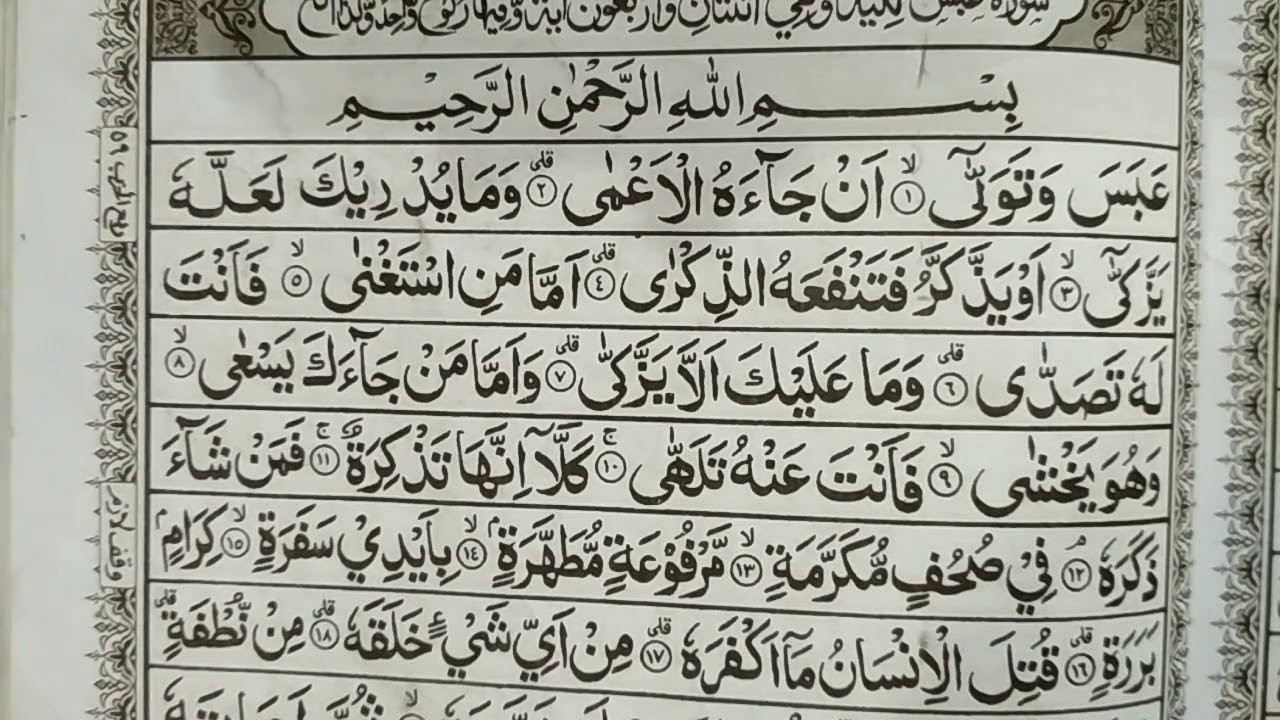 سورة عبس مكية وهي اثنتان واربعون اية وفيها ركوع واحد
بِسْمِ اللّٰهِ الرَّحْمٰنِ الرَّحِيْمِ
عَبَسَ وَتَوَلّٰۤى ۙ﴿۱﴾ اَنْ جَآءَهُ الْاَعْمٰى ؕ﴿۲﴾ وَمَا يُدْرِيْكَ لَعَلَّهٗ
يَزَّكّٰۤى ۙ﴿۳﴾ اَوْ يَذَّكَّرُ فَتَنْفَعَهُ الذِّكْرٰى ؕ﴿۴﴾ اَمَّا مَنِ اسْتَغْنٰى ۙ﴿۵﴾ فَاَنْتَ
لَهٗ تَصَدّٰى ؕ﴿۶﴾ وَمَا عَلَيْكَ اَلَّا يَزَّكّٰى ؕ﴿۷﴾ وَاَمَّا مَنْ جَآءَكَ يَسْعٰى ۙ﴿۸﴾
وَهُوَ يَخْشٰى ۙ﴿۹﴾ فَاَنْتَ عَنْهُ تَلَهّٰى ۚ﴿۱۰﴾ كَلَّاۤ اِنَّهَا تَذْكِرَةٌ ۚ﴿۱۱﴾ فَمَنْ شَآءَ
ذَكَرَهٗ ۘ﴿۱۲﴾ فِيْ صُحُفٍ مُّكَرَّمَةٍ ۙ﴿۱۳﴾ مَّرْفُوْعَةٍ مُّطَهَّرَةٍۭ ۙ﴿۱۴﴾ بِاَيْدِيْ سَفَرَةٍ ۙ﴿۱۵﴾ كِرَامٍۭ
بَرَرَةٍ ؕ﴿۱۶﴾ قُتِلَ الْاِنْسَانُ مَاۤ اَكْفَرَهٗ ؕ﴿۱۷﴾ مِنْ اَيِّ شَيْءٍ خَلَقَهٗ ؕ﴿۱۸﴾ مِنْ نُّطْفَةٍ ؕ
وقف لازم